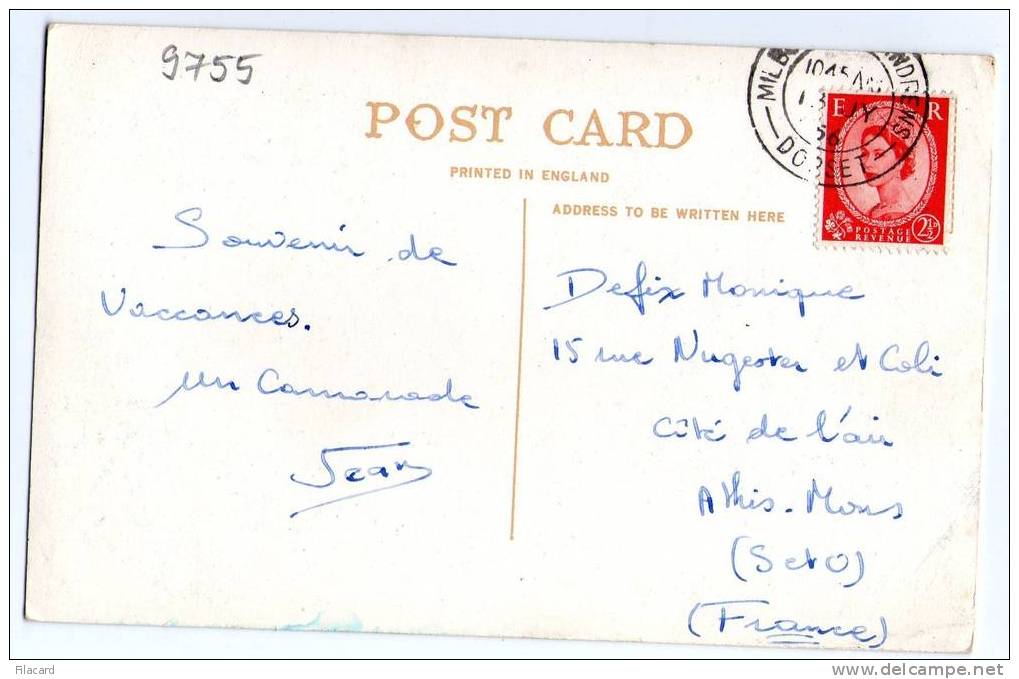 9755
POST CARD
PRINTED IN ENGLAND
ADDRESS TO BE WRITTEN HERE
10 45 AM
56
DORSET
E R
POSTAGE
REVENUE
2½D
Souvenir de
Vaccances.
un Camarade
Jean
Defix Monique
15 rue Nugester et Coli
Cité de l'air
Athis-Mons
(S et O)
(France)
Filacard
www.delcampe.net